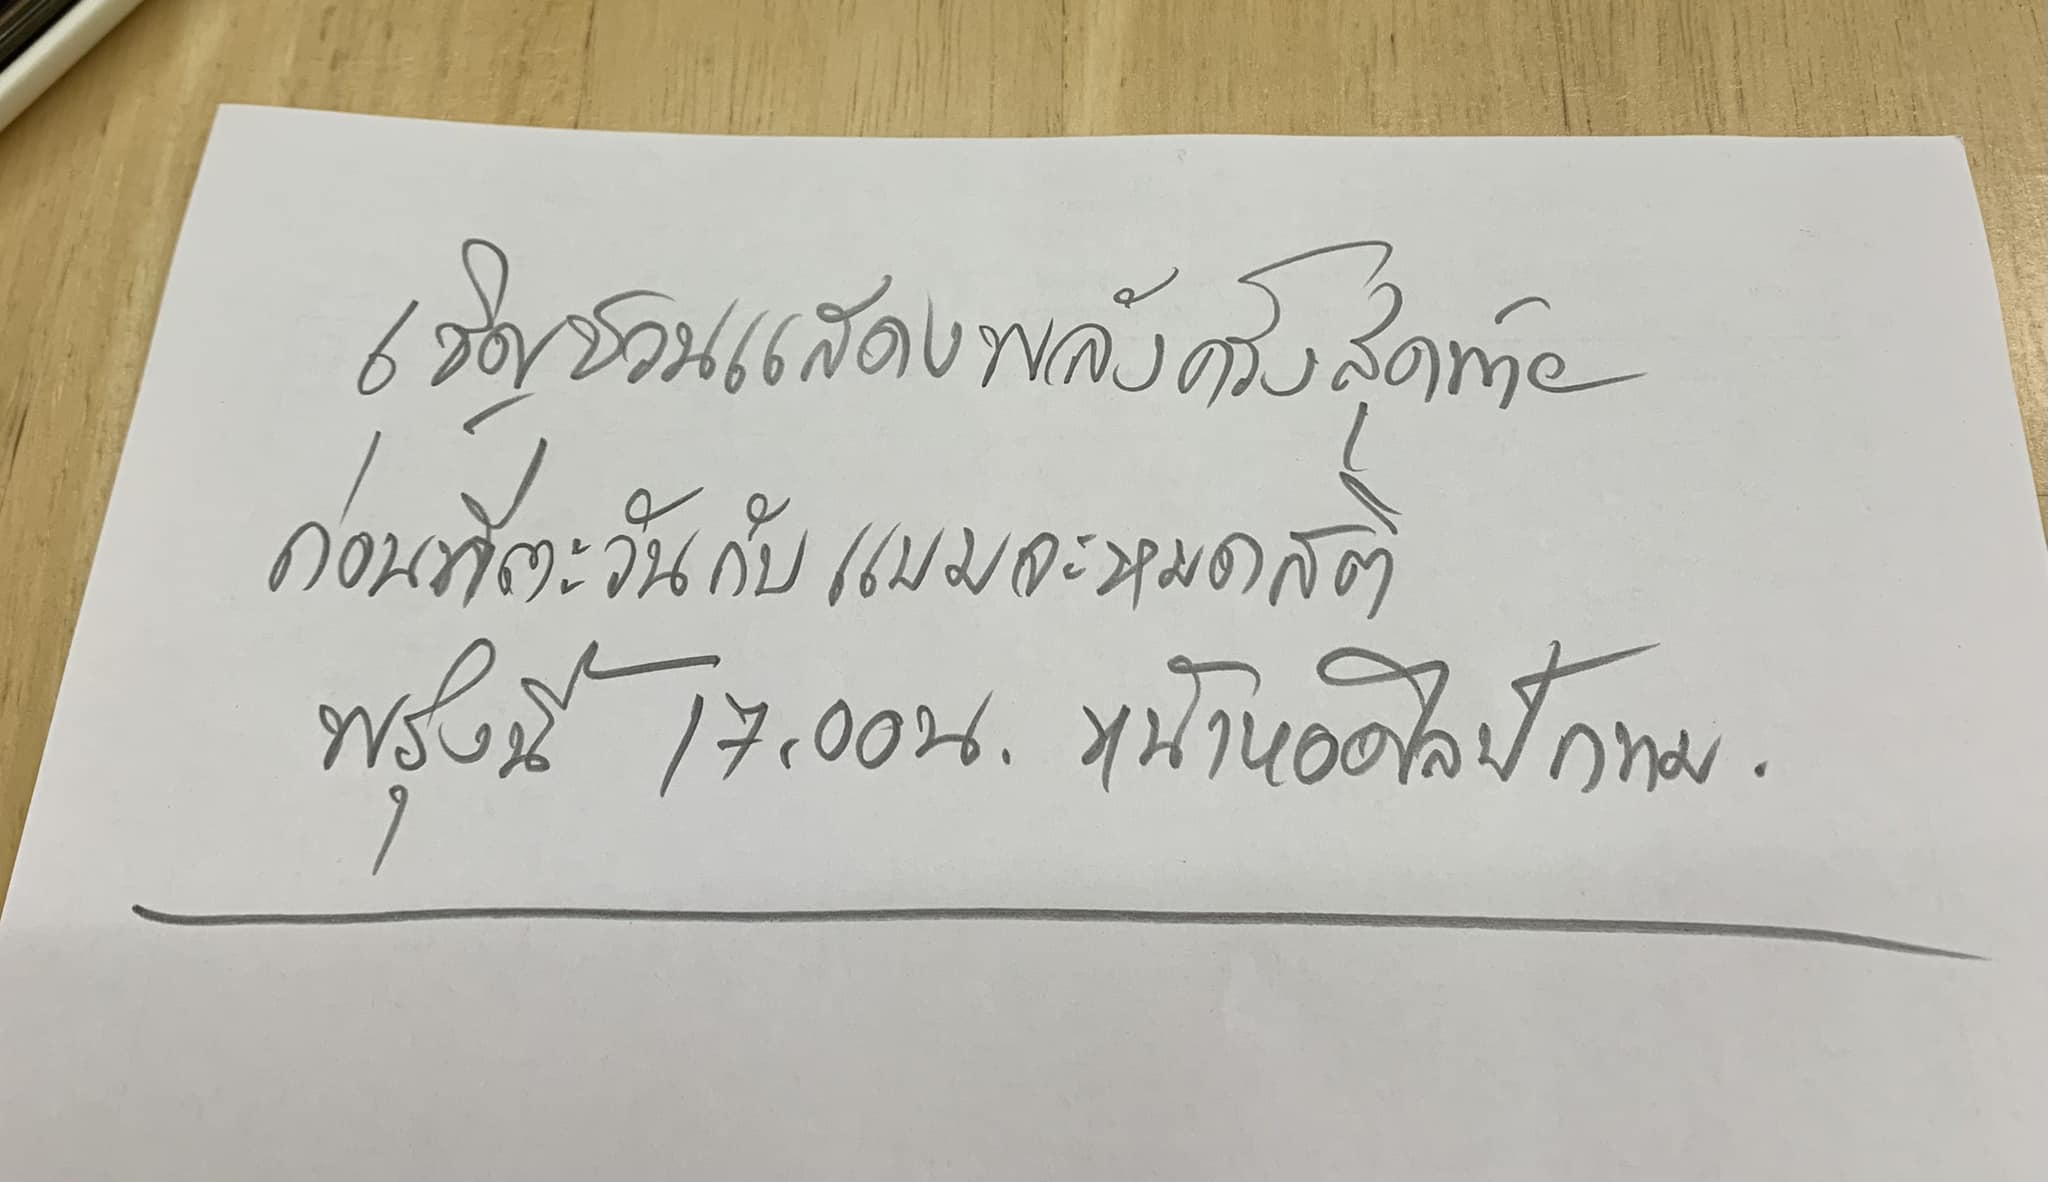 เชิญชวนแสดงพลังครั้งสุดท้าย
ก่อนที่ตะวันกับแบมจะหมดสติ
พรุ่งนี้ 17.00น. หน้าหอศิลป์ กทม.